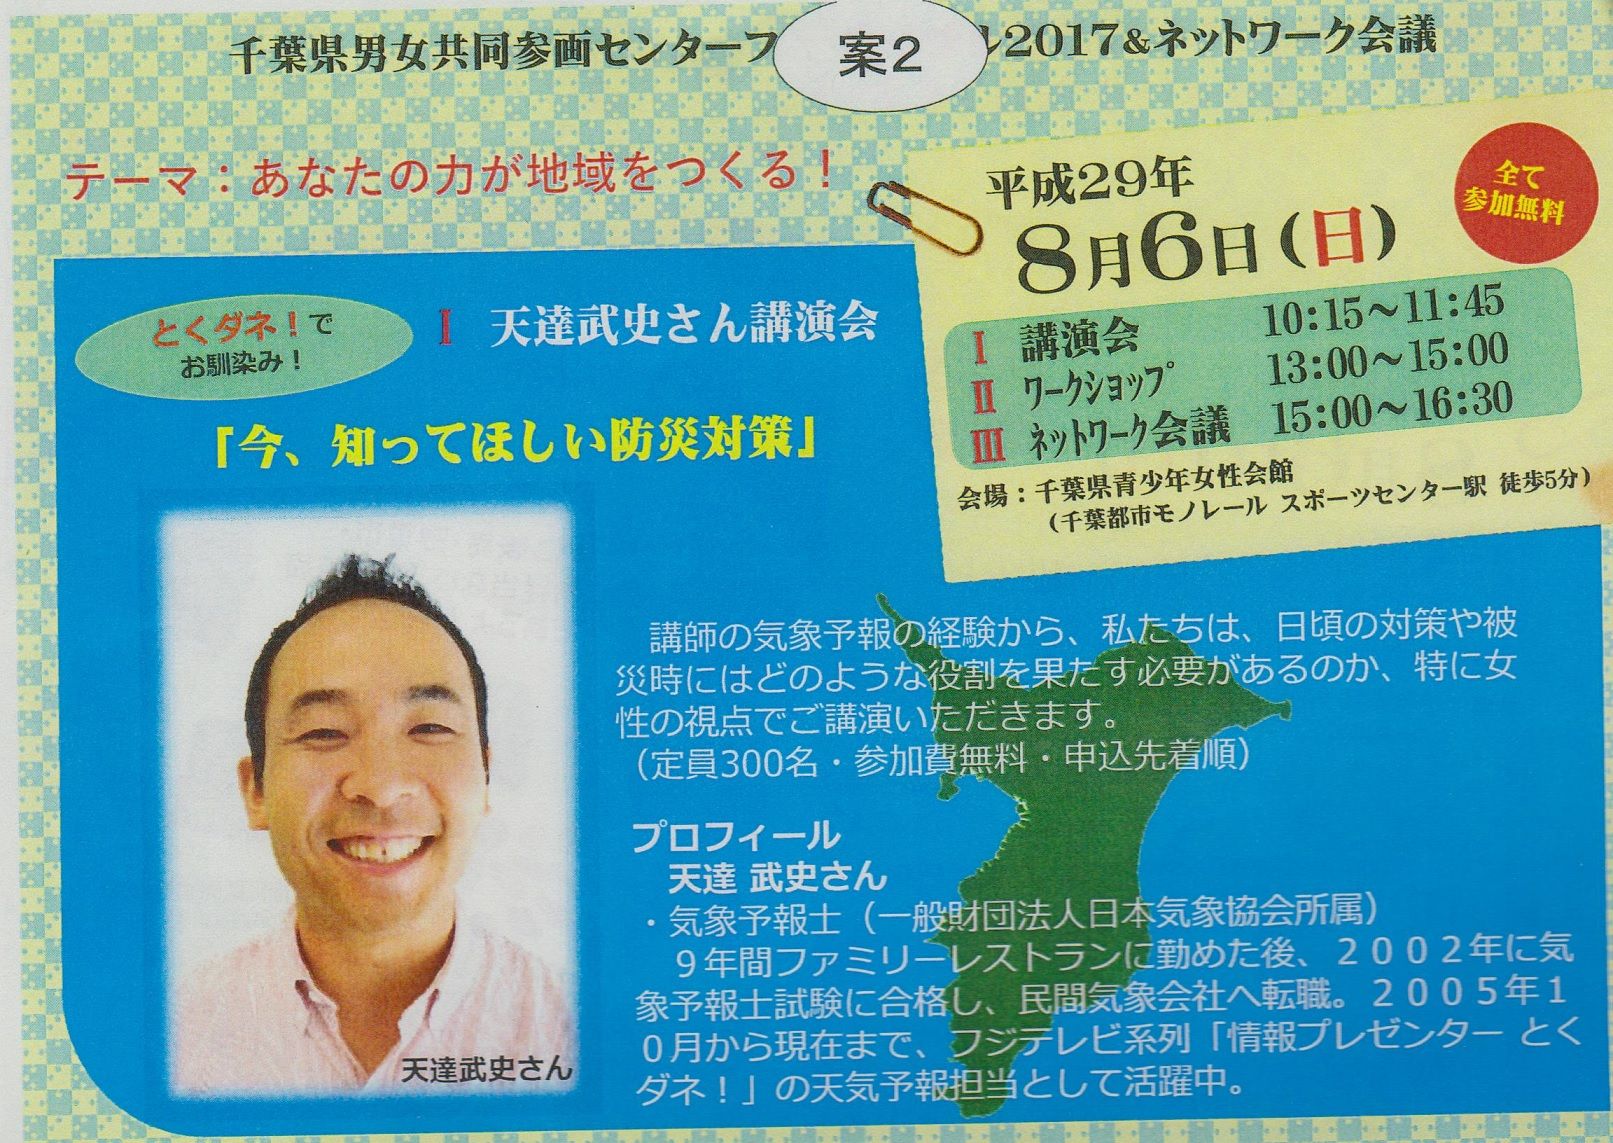 千葉県男女共同参画センターフ
案2
ル2017&ネットワーク会議
テーマ：あなたの力が地域をつくる！
平成29年
8月6日(日)
全て
参加無料
I 講演会 10:15～11:45
II ワークショップ 13:00～15:00
III ネットワーク会議 15:00～16:30
会場：千葉県青少年女性会館
(千葉都市モノレール スポーツセンター駅 徒歩5分)
とくダネ！で
お馴染み！
I 天達武史さん講演会
「今、知ってほしい防災対策」
講師の気象予報の経験から、私たちは、日頃の対策や被
災時にはどのような役割を果たす必要があるのか、特に女
性の視点でご講演いただきます。
（定員300名・参加費無料・申込先着順）
プロフィール
天達 武史さん
・気象予報士（一般財団法人日本気象協会所属）
９年間ファミリーレストランに勤めた後、２００２年に気
象予報士試験に合格し、民間気象会社へ転職。２００５年１
０月から現在まで、フジテレビ系列「情報プレゼンター とく
ダネ！」の天気予報担当として活躍中。
天達武史さん